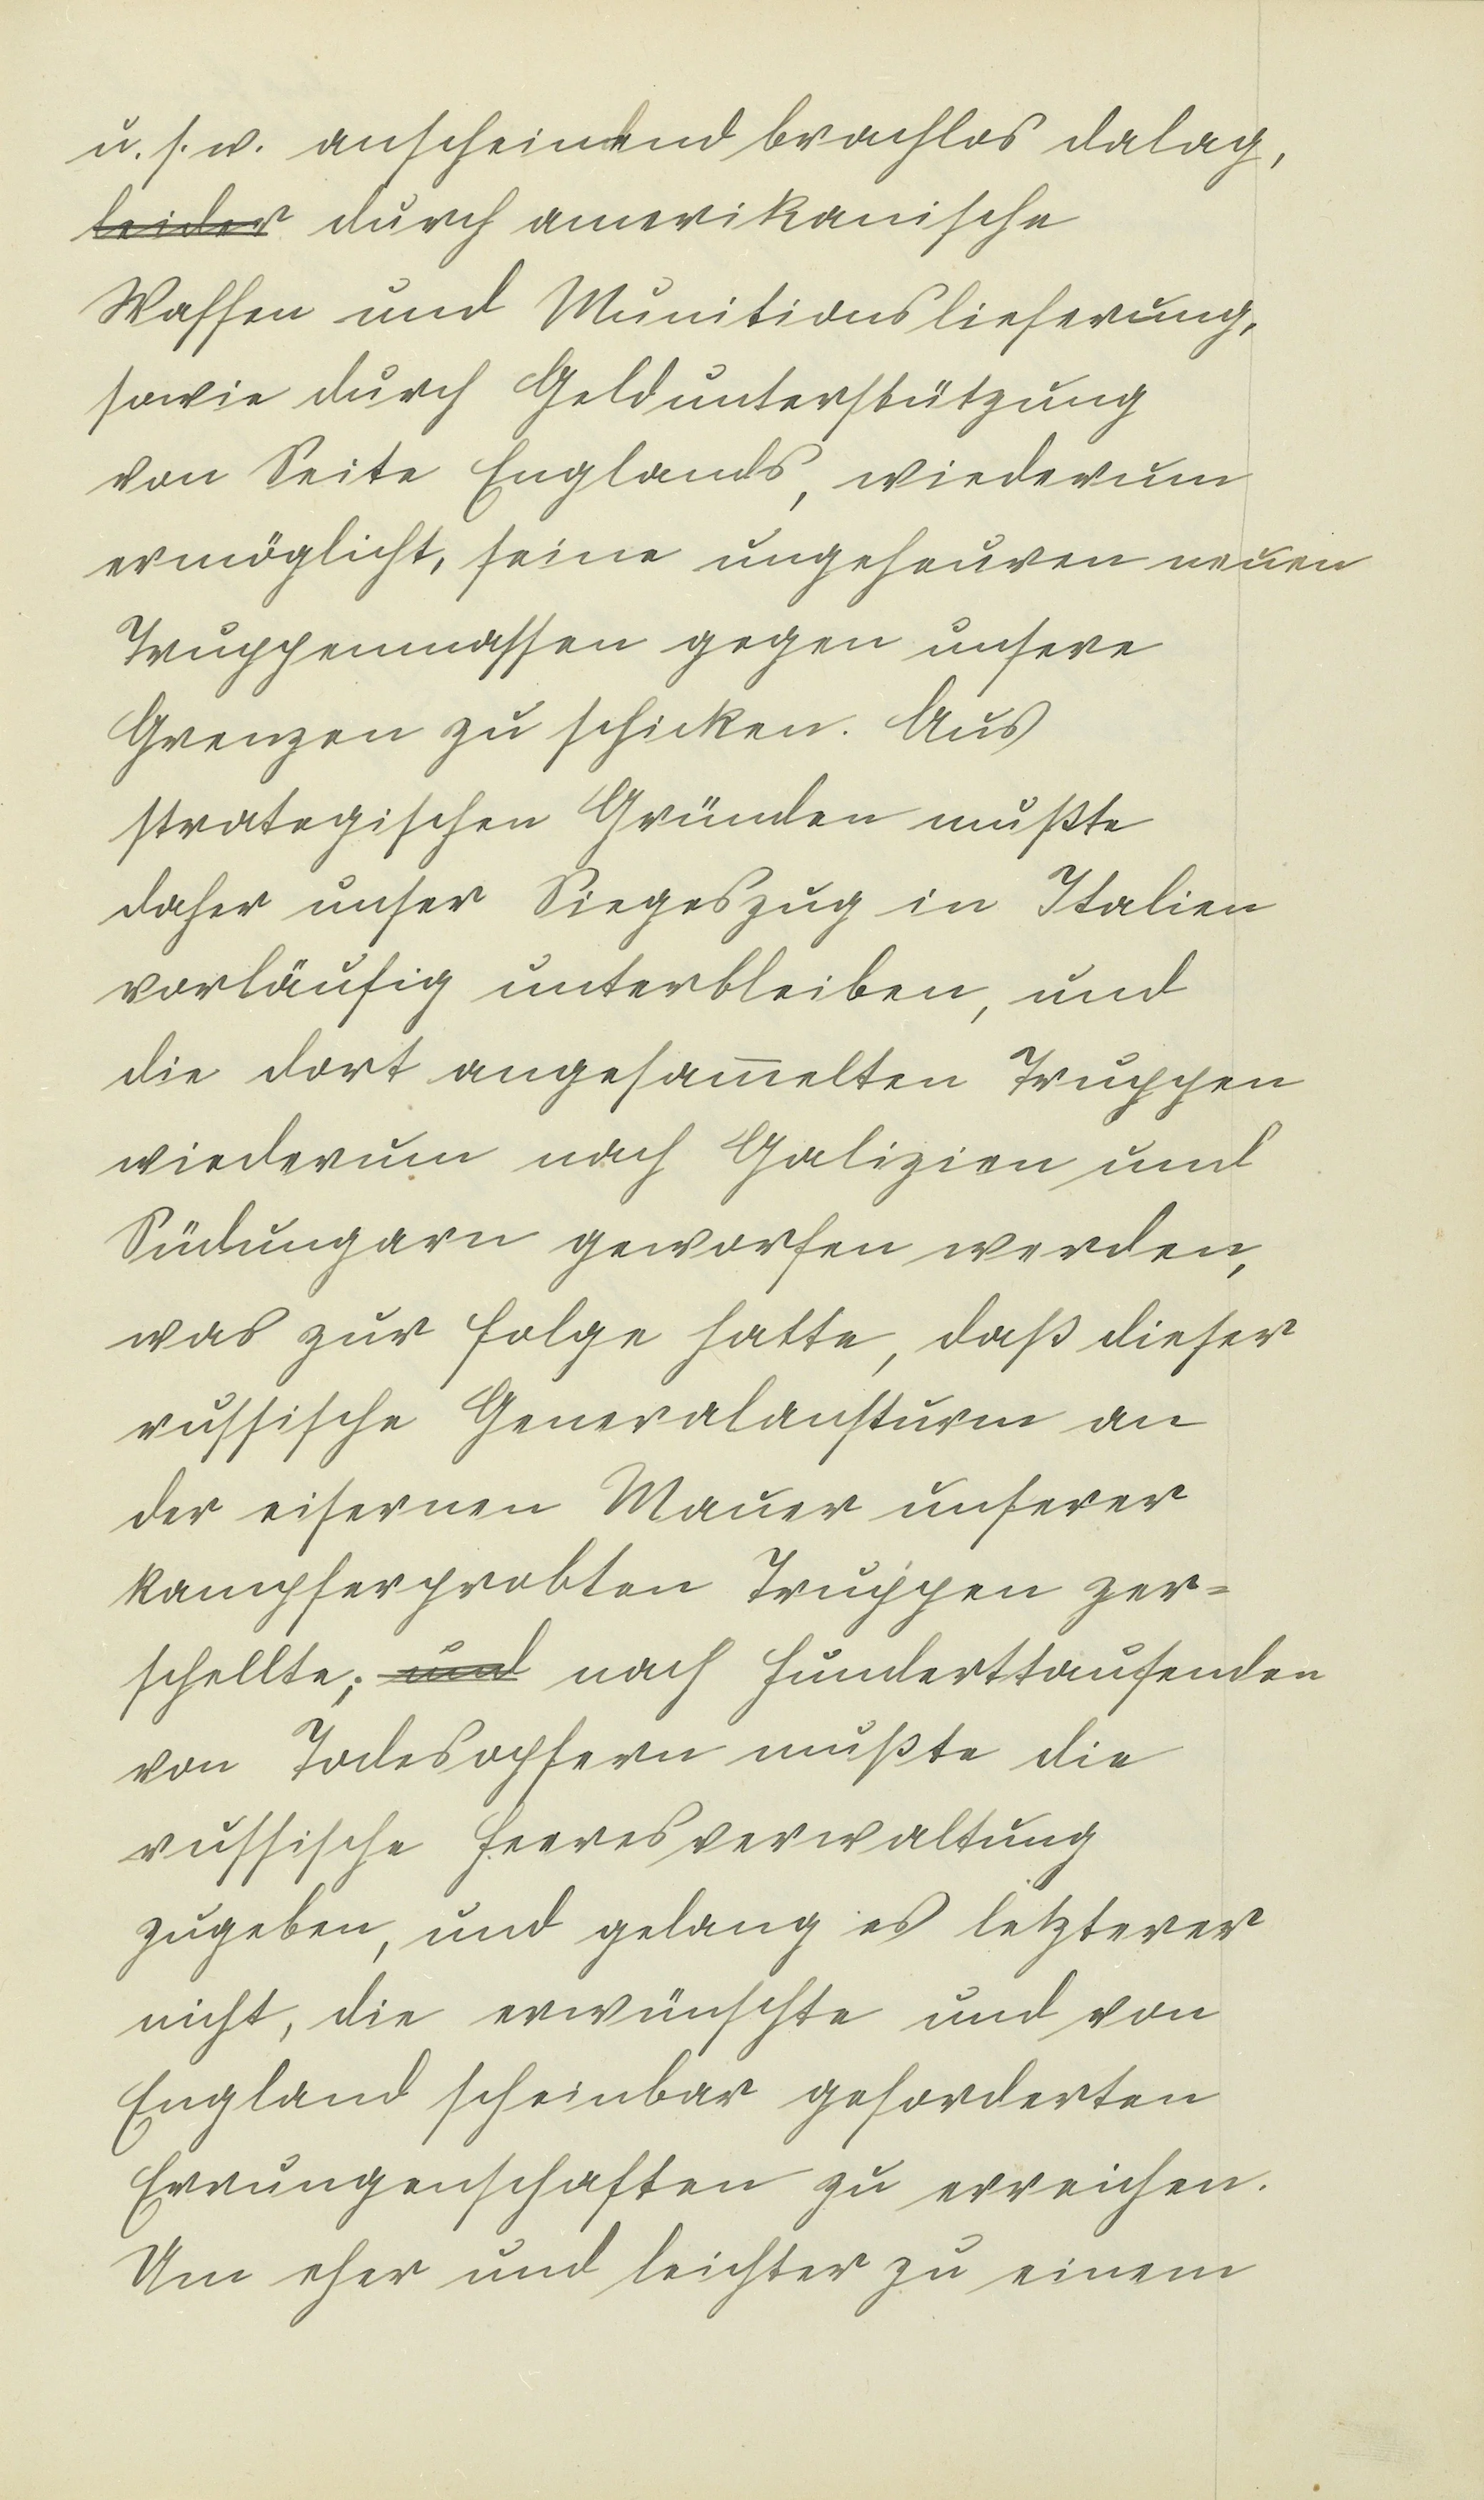 u. s. w. anscheinend brachlos dalag,
leider durch amerikanische
Waffen und Munitionslieferung,
sowie durch Geldunterstützung
von Seite Englands, wiederum
ermöglicht, seine ungeheuren neuen
Truppenmassen gegen unsere
Grenzen zu schicken. Aus
strategischen Gründen mußte
daher unser Siegeszug in Italien
vorläufig unterbleiben, und
die dort angesam̅elten Truppen
wiederum nach Galizien und
Südungarn geworfen werden,
was zur Folge hatte, daß dieser
russische Generalansturm an
der eisernen Mauer unserer
kampferprobten Truppen zer=
schellte; und nach Hunderttausenden
von Todesopfern mußte die
russische Heeresverwaltung
zugeben, und gelang es letzterer
nicht, die erwünschte und von
England scheinbar geforderten
Errungenschaften zu erreichen.
Um eher und leichter zu einem